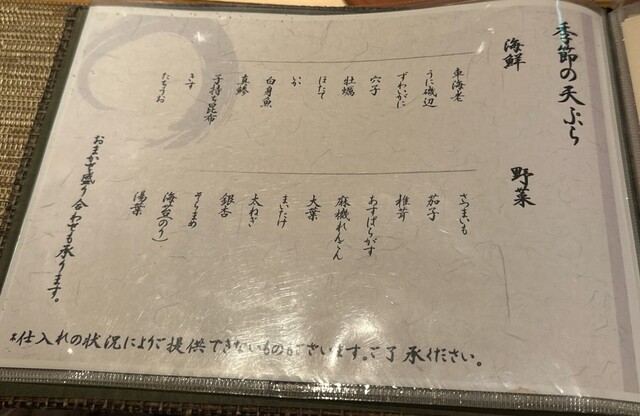 季節の天ぷら
海鮮
車海老
うに磯辺
ずわいがに
穴子
牡蠣
ほたて
いか
白身魚
真鯵
子持ち昆布
きす
たちうお
野菜
さつまいも
茄子
椎茸
あすぱらがす
麻機れんこん
大葉
まいたけ
太ねぎ
銀杏
そらまめ
海苔(のり)
湯葉
おまかせ盛り合わせも承ります。
※仕入れの状況によりご提供できないものがございます。ご了承ください。